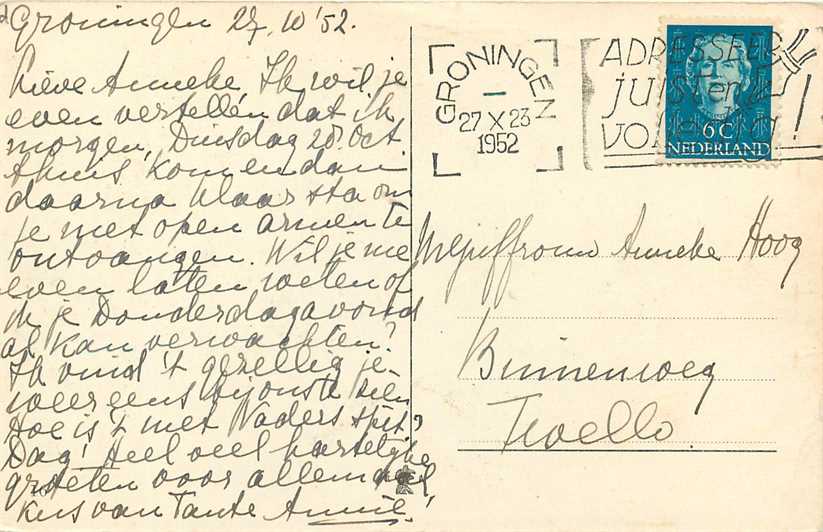 Groningen 27.10'52.
Lieve Anneke, Ik wil je
even vertellen dat ik
morgen, Dinsdag 28 Oct.
thuis kom en dan
daarna klaar sta om
je met open armen te
ontvangen. Wil je me
even laten weten of
ik je Donderdagavond
al kan verwachten?
Ik vind 't gezellig je
weer eens bij ons te zien
Hoe is 't met Vaders spit?
Dag! Heel veel hartelijke
groeten voor allemaal,
kus van Tante Annie.
GRONINGEN
27 X 23
1952
ADRESSEER
JUIST en
VOLLEDIG!
6 C
NEDERLAND
Mejuffrouw Anneke Hoog
Binnenweg
Twello